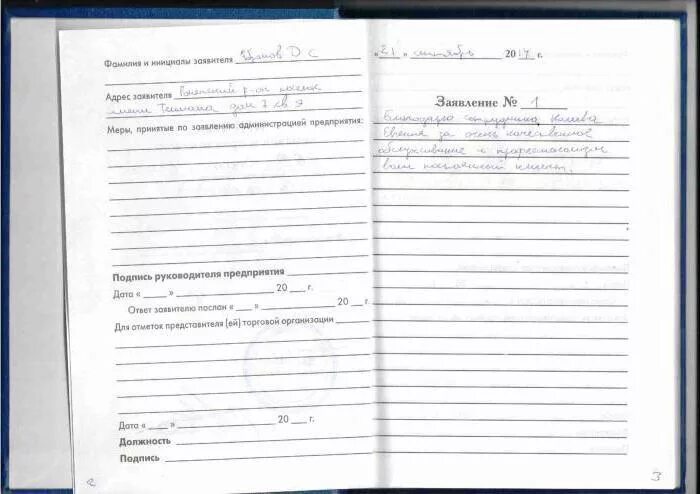 Фамилия и инициалы заявителя Д С
Адрес заявителя р-он посёлок
имени Тельмана дом 7 кв 9
Меры, принятые по заявлению администрацией предприятия:
Подпись руководителя предприятия
Дата « » 20 г.
Ответ заявителю послан « » 20 г.
Для отметок представителя (ей) торговой организации
Дата « » 20 г.
Должность
Подпись
2
„ 21 " сентябрь 2017 г.
Заявление № 1
Благодарю сотрудника
Евгения за очень качественное
обслуживание и
ваш постоянный клиент.
3